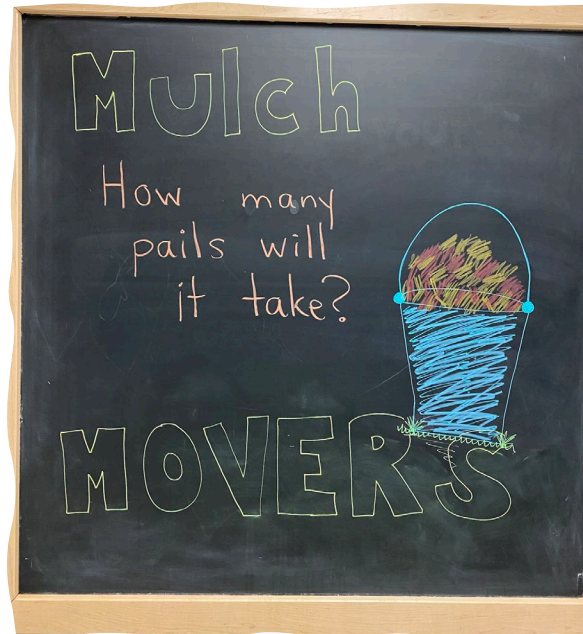 Mulch
How many
pails will
it take?
MOVERS